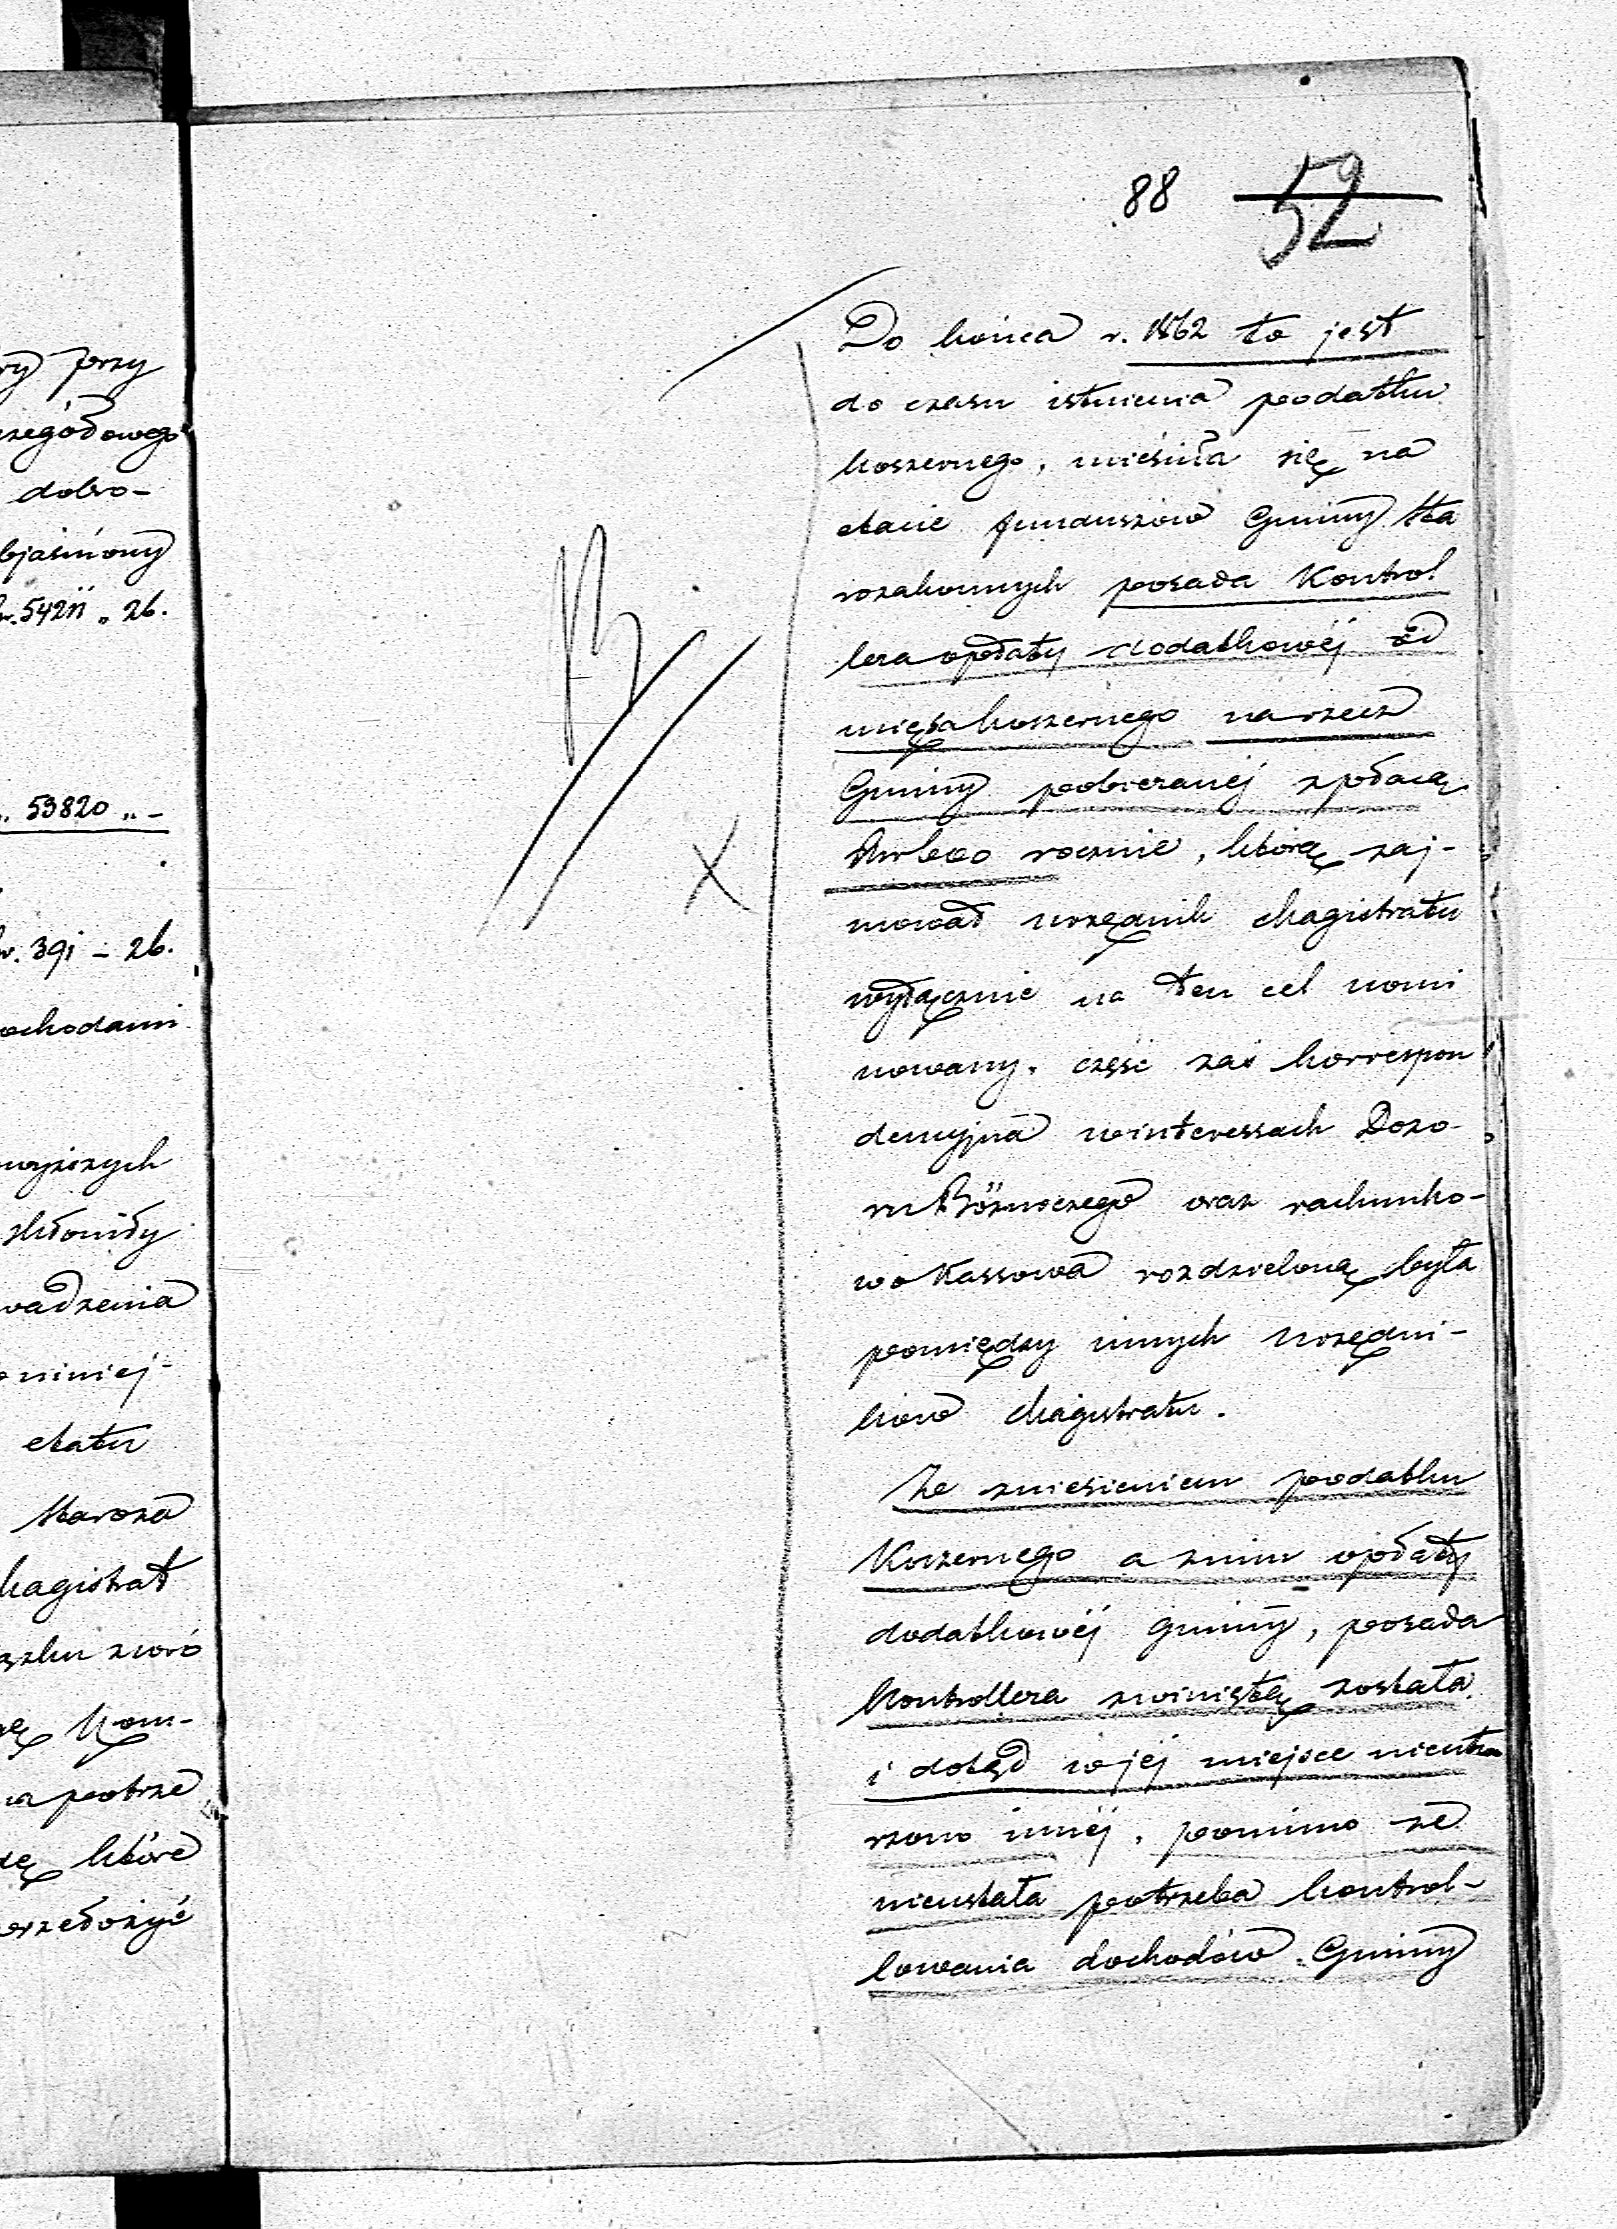 ry przy
czegółowego
dobro-
bjaśniony
r. 54211 „ 26.
„ 53820 „ -
r. 391 - 26.
ochodami
wyższych
skłoniły
wadzenia
niniej-
etatu
Staroza
Magistrat
ązku zwró
Kom-
na potrze
które
przedożyć
88 52
Do końca r. 1862 to jest
do czasu istnienia podatku
koszernego, mieśiła się na
etacie funduszów Gminy Sta
rozakonnych posada Kontrol
lera opłaty dodatkowéj od
mięsa koszernego na rzecz
Gminy pobieranéj z płacą
rocznie, którą zaj-
mował urzędnik Magistratu
wyłącznie na ten cel nomi
nowany, część zaś korrespon
dencyjna w interessach Dozo-
ru Bóżniczego oraz rachunko-
wo Kassowa rozdzieloną była
pomiędzy innych urzędni-
ków Magistratu.
Ze zniesieniem podatku
Koszernego a z nim opłaty
dodatkowéj gminy, posada
Kontrollera zwiniętą została
i dotąd w jéj miejsce nieutwo
rzono innéj, pomimo że
nieustała potrzeba kontrol-
lowania dochodów Gminy